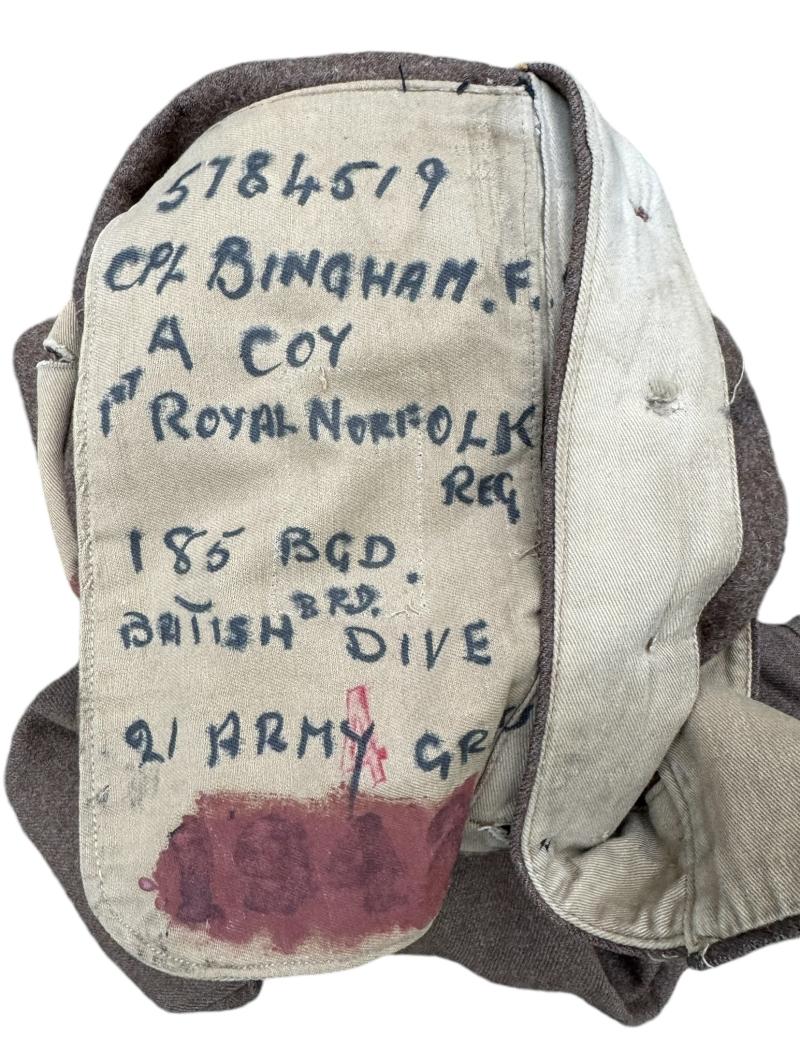 5784519
CPL BINGHAM. F.
A COY
1ST ROYAL NORFOLK
REG
185 BGD.
BRITISH 3RD. DIVE
21 ARMY